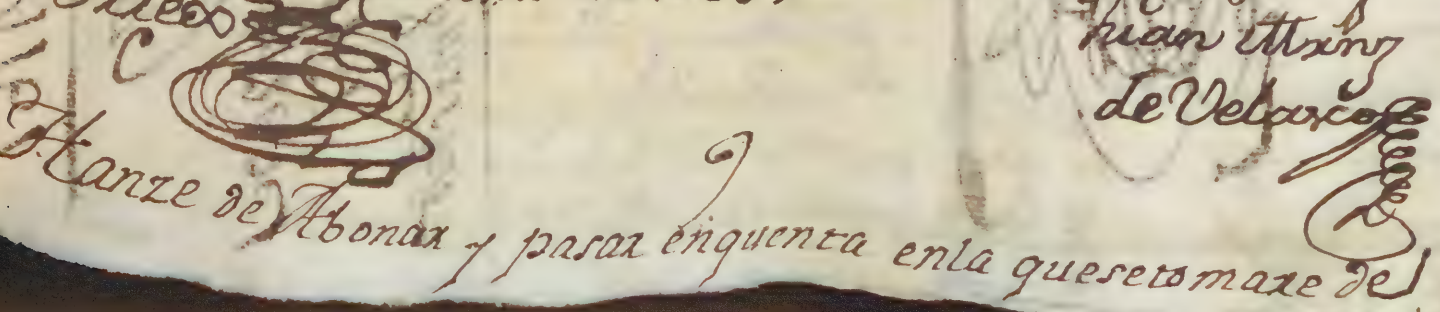 C
Juan Mrnz
de Velasco
Hanze de Abonar y pasar enquenta enla quesetomare del